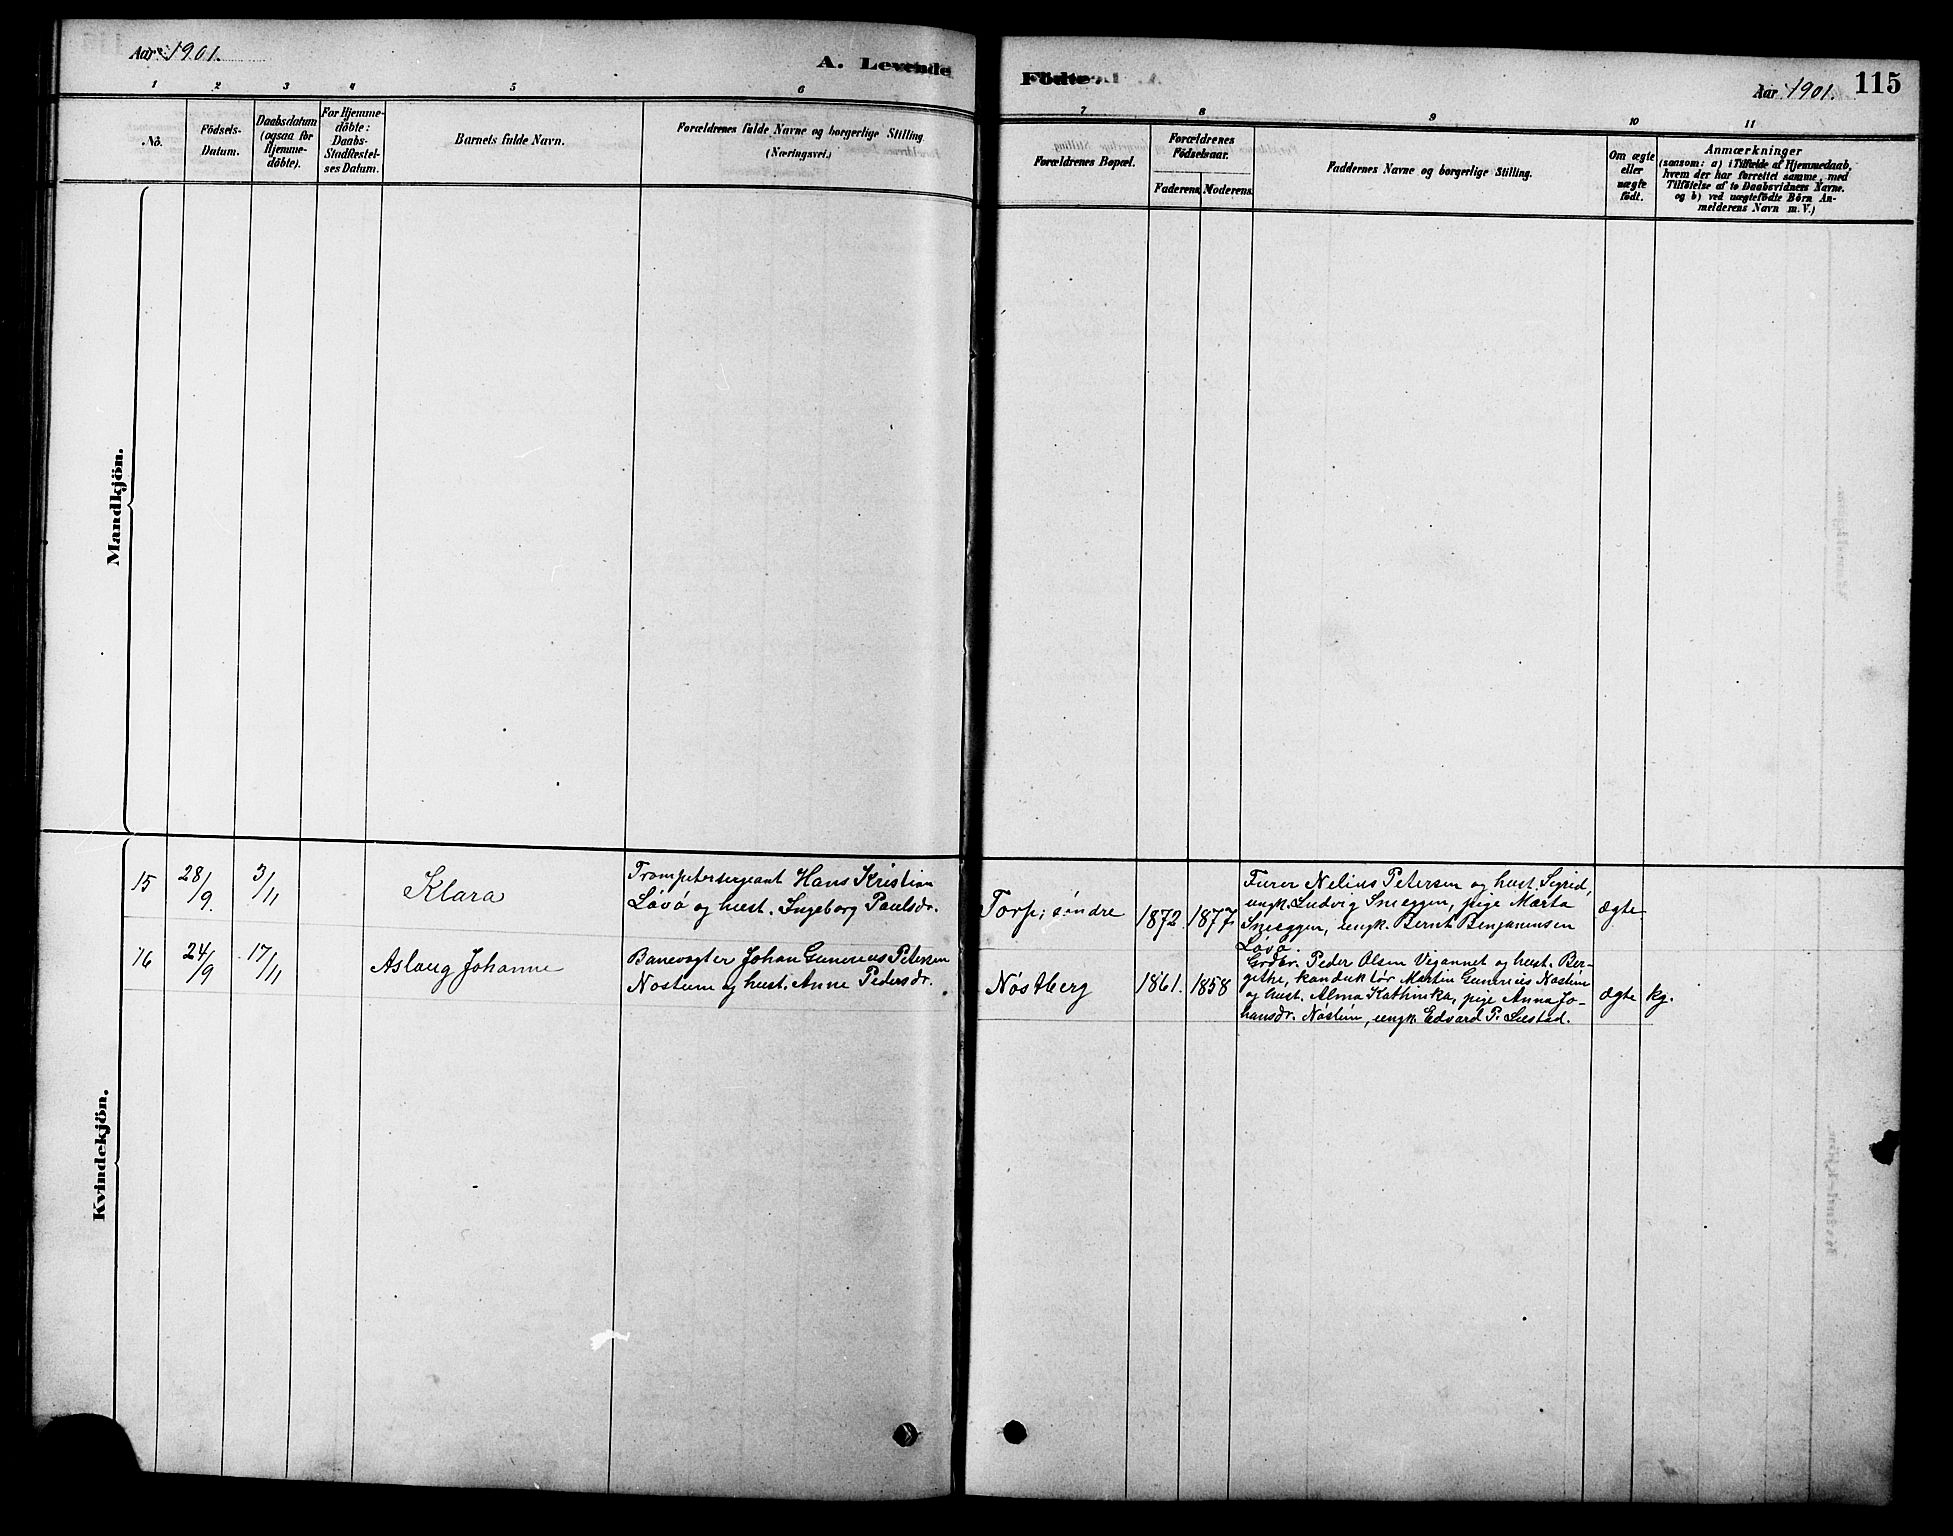 Aar 1901.
A. Levende
1 2 3 4 5 6
No.
Födsels-
Datum.
Daabsdatum
(ogsaa for
Hjemme-
döbte).
For Hjemme-
döbte:
Daabs-
Stadfæstel-
ses Datum.
Barnets fulde Navn.
Forældrenes fulde Navne og borgerlige Stilling
(Næringsvei.)
Mandkjön.
Kvindekjön.
15
28/9
3/11
Klara
Trompetersergeant Hans Kristian
Lövö og hust. Ingeborg Paulsdr.
16
24/9
17/11
Aslaug Johanne
Banevogter Johan Gunerius Petersen
Nöstum og hust. Anne Pedersdr.
Födte.
Aar 1901.
115
7 8 9 10 11
Forældrenes Bopæl.
Forældrenes
Födselsaar.
Faderens.
Moderens.
Faddernes Navne og borgerlige Stilling.
Om ægte
eller
uægte
födt.
Anmærkninger
(saasom: a) i Tilfælde af Hjemmedaab,
hvem der har forrettet samme, med
Tilföielse af to Daabsvidners Navne.
og b) ved uægtefödte Börn An-
melderens Navn m.V.)
Torp, söndre
1872.
1877
Furer Nelius Petersen og hust. Sigrid,
ungk. Ludvig Sneeggen, pige Marta
Sneeggen, ungk. Bernt Benjaminsen
Lövö.
ægte
Nöstberg
1861.
1858
Grdbr. Peder Olsen Vigannet og hust. Ber-
githe, konduktör Martin Gunerius Nostum
og hust. Alma Kathinka, pige Anna Jo-
hansdr. Nöstum, ungk. Edvard P. Lustad.
ægte
kj.